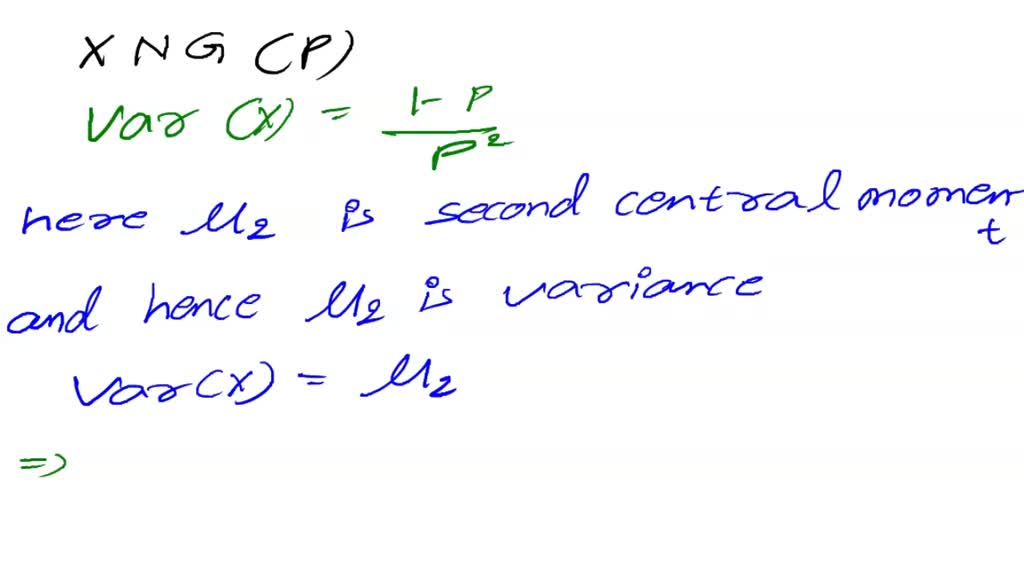 X N G (P)
Var (X) = 1-P / P²
here μ2 is second central moment
and hence μ2 is variance
Var(X) = μ2
=>